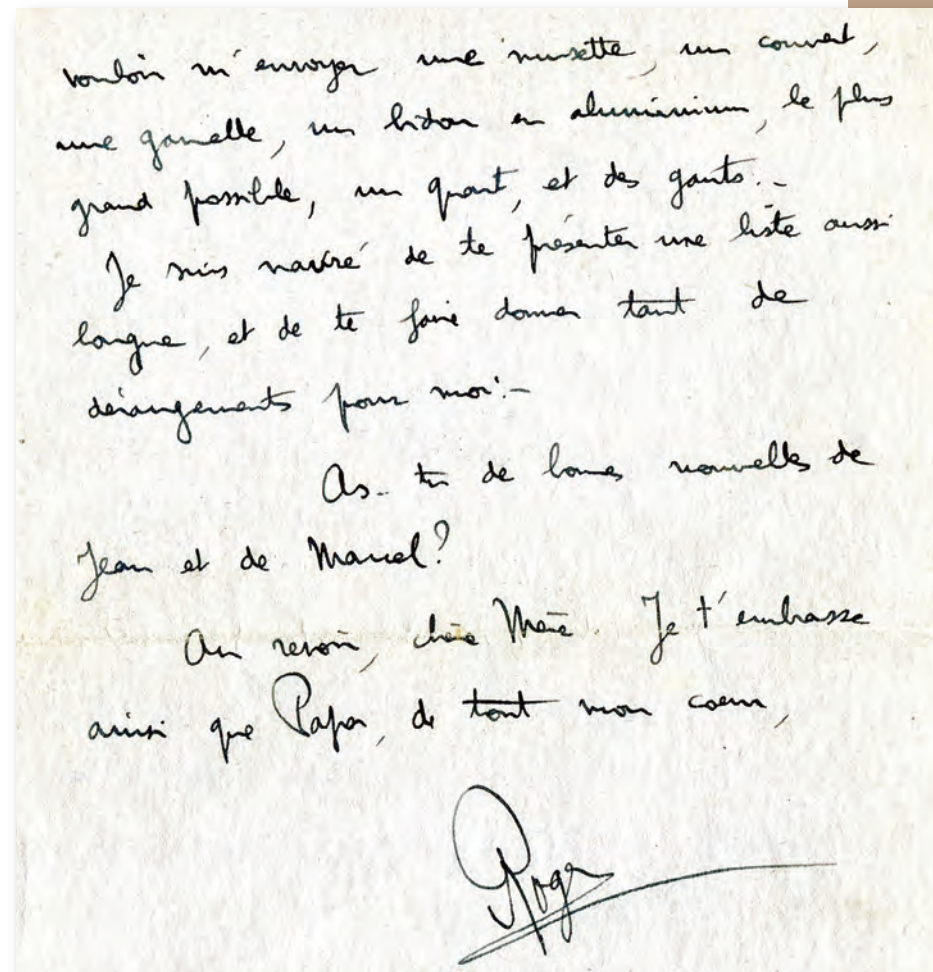 vouloir m'envoyer une musette, un couvert,
une gamelle, un bidon en aluminium, le plus
grand possible, un quart, et des gants. -
Je suis navré de te présenter une liste aussi
longue, et de te faire donner tant de
dérangements pour moi. -
As-tu de bonnes nouvelles de
Jean et de Marcel ?
Au revoir, chère Mère. Je t'embrasse
ainsi que Papa, de tout mon coeur,
Roger